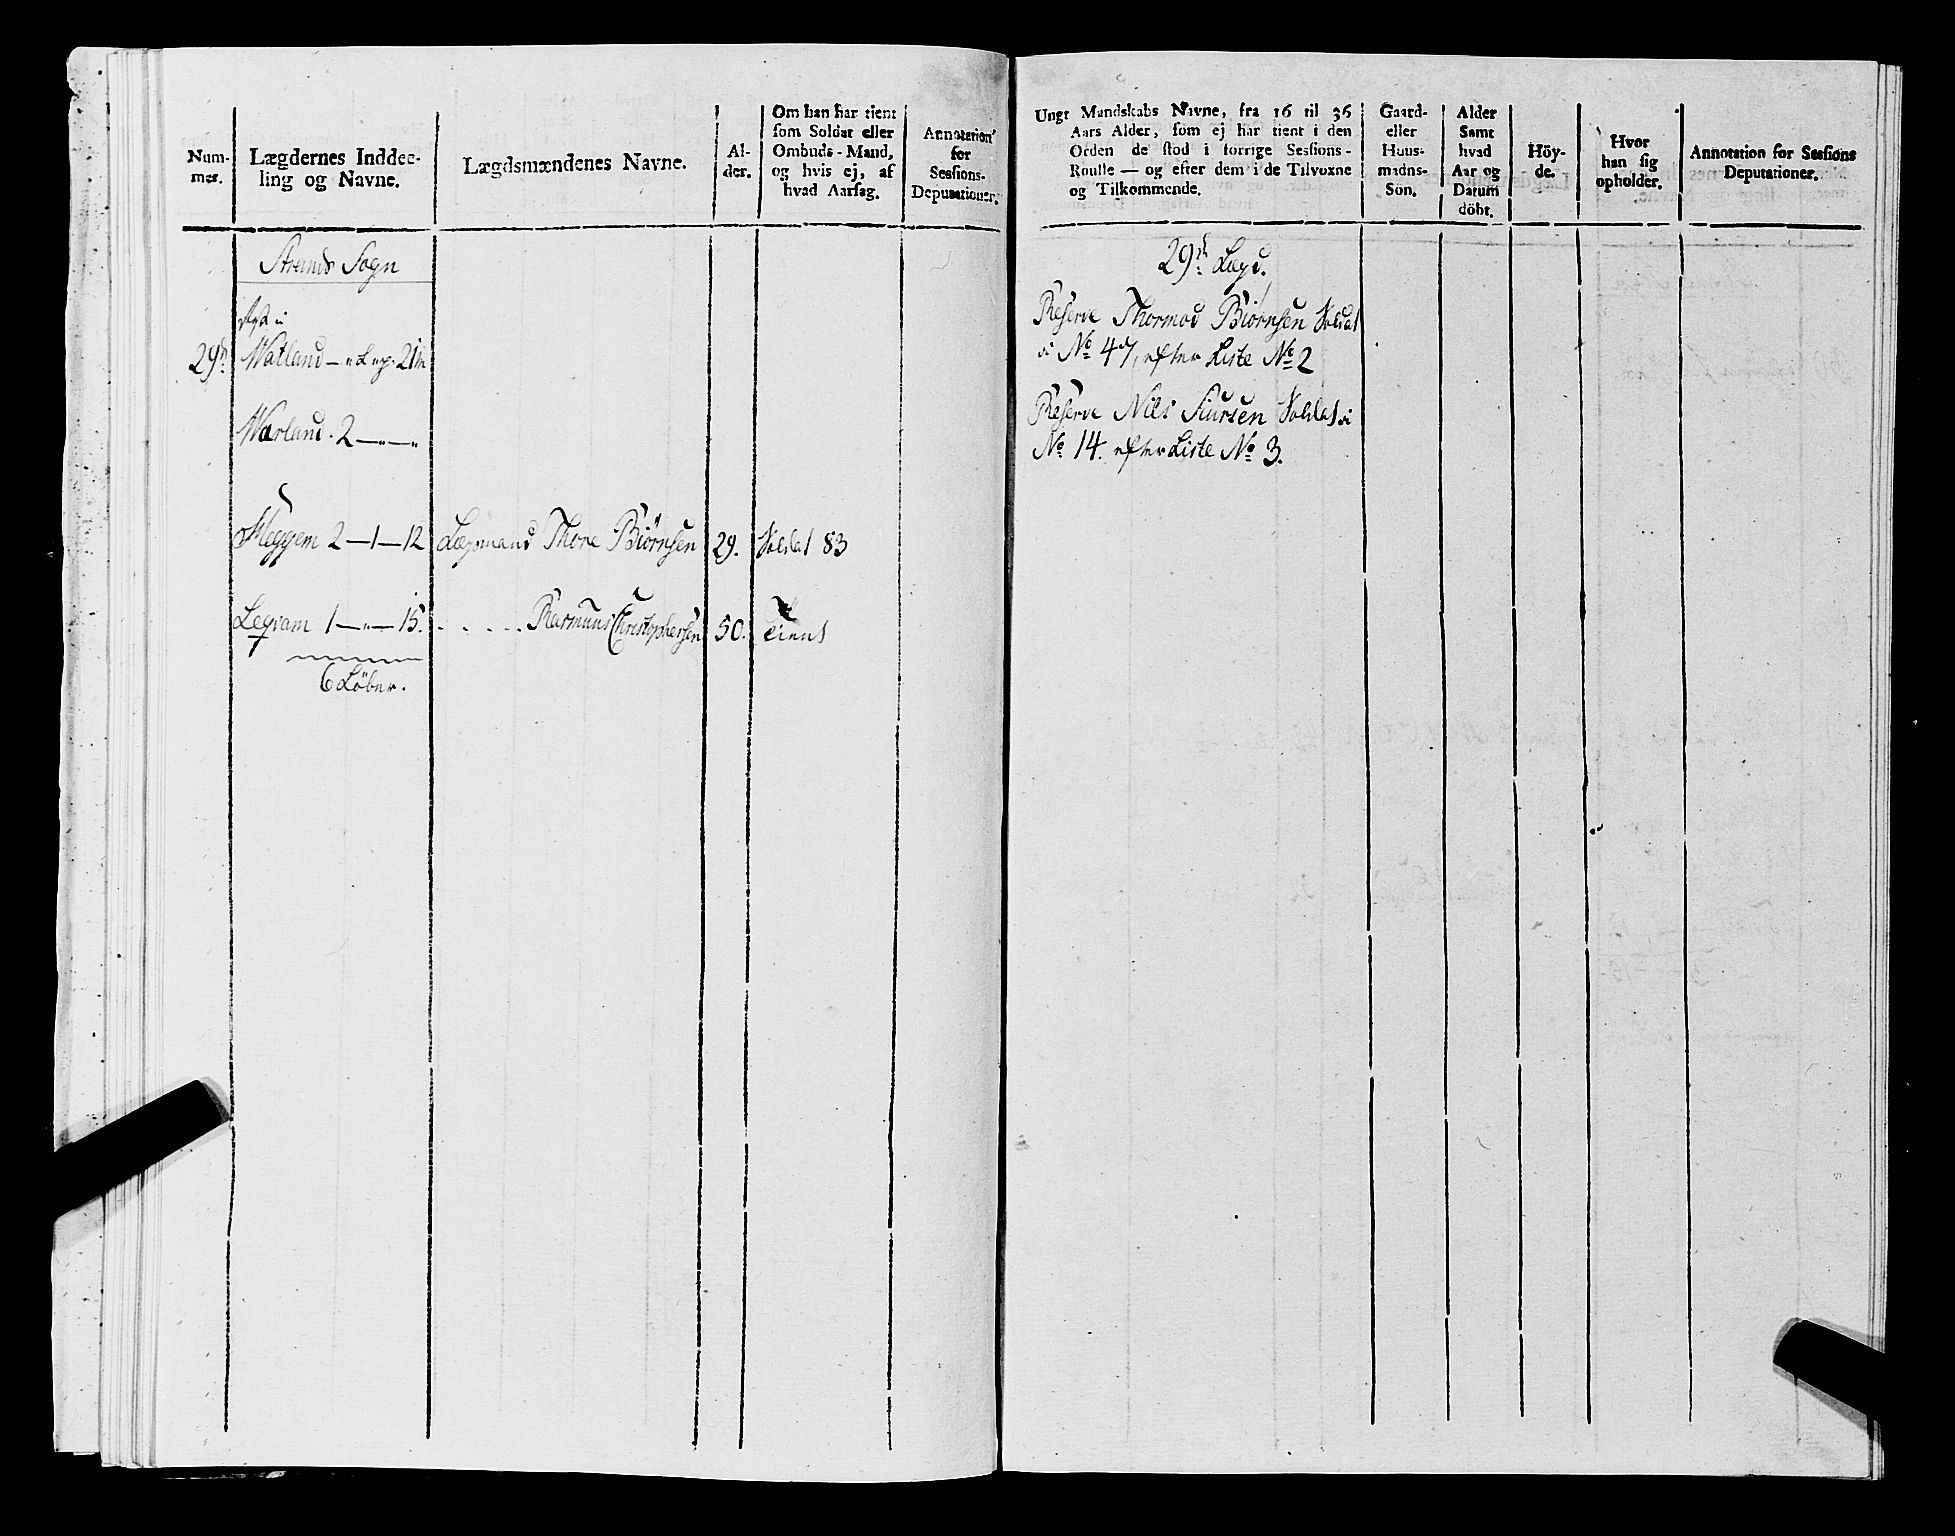 Num-
mer.
Lægdernes Inddee-
ling og Navne.
Lægdsmændenes Navne.
Al-
der.
Om han har tient
som Soldat eller
Ombuds-Mand,
og hvis ej, af
hvad Aarsag.
Annotation
for
Sessions-
Deputationer.
Strands Sogn
29d
Watland
Warland. 2 — „ — „
Meggem 2 — 1 — 12 Lægsmand Thore Biörnsen 29. Soldat 83
Legvam 1 — „ — 15. . . . . . Rasmuus Christophersen 50. Tient
6 Löber.
Ungt Mandskabs Navne, fra 16 til 36
Aars Alder, som ej har tient i den
Orden de stod i forrige Sessions-
Roulle — og efter dem i de Tilvoxne
og Tilkommende.
Gaard-
eller
Huus-
madns-
Sön.
Alder
Samt
hvad
Aar og
Datum
döbt.
Höy-
de.
Hvor
han sig
opholder.
Annotation for Sessions
Deputationer.
29d Lægd.
Reserve Thormod Biörnsen Soldat
i No 47, efter Liste No 2
Reserve Nils Siursen Soldat i
No 14. efter Liste No 3.